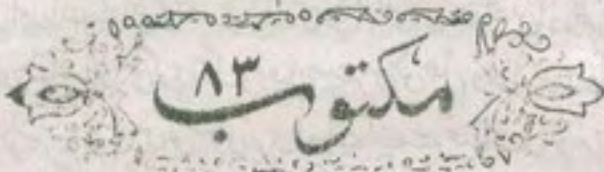 مکتوب ۸۳